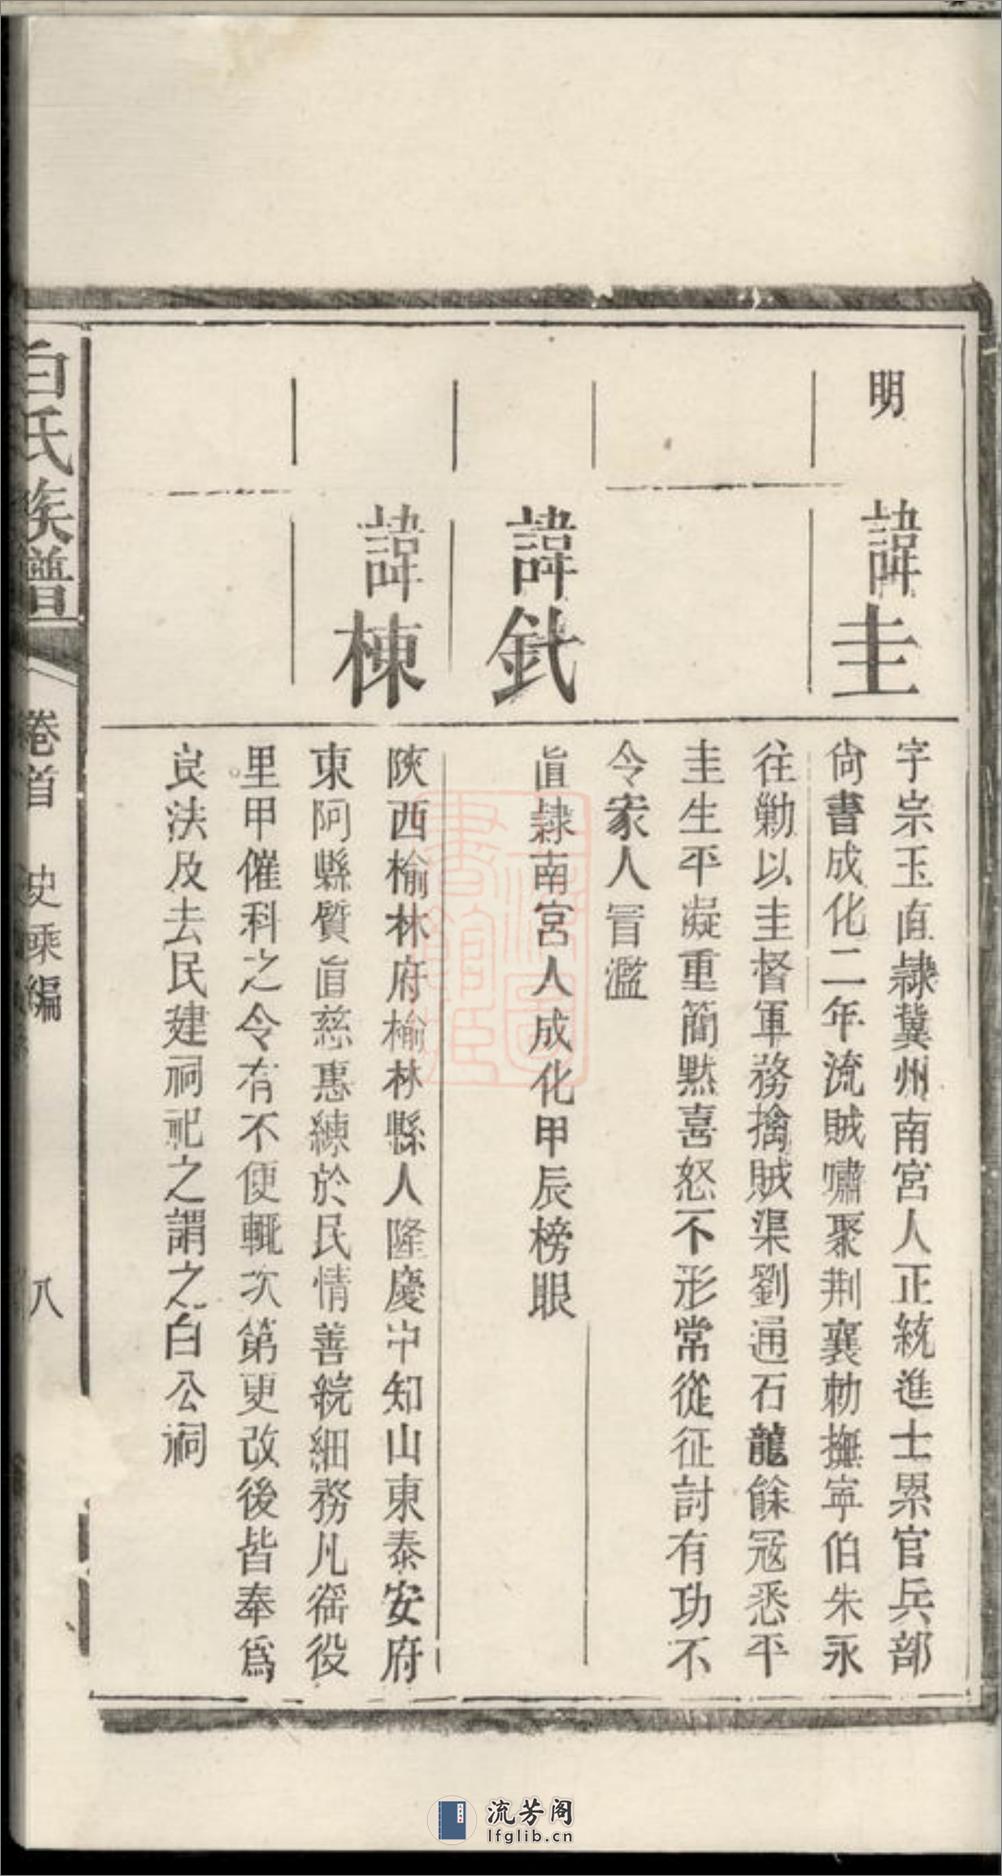 明
諱圭
字宗玉直隸冀州南宮人正統進士累官兵部
尙書成化二年流賊嘯聚荆襄勅撫寧伯朱永
往勦以圭督軍務擒賊渠劉通石龍餘冦悉平
圭生平凝重簡默喜怒不形常從征討有功不
令家人冒濫
諱釴
直隸南宮人成化甲辰榜眼
諱棟
陝西榆林府榆林縣人隆慶中知山東泰安府
東阿縣質直慈惠練於民情善綜細務凡徭役
里甲催科之令有不便輒次第更改後皆奉爲
良法及去民建祠祀之謂之白公祠
白氏族譜
卷首 史乘編 八
流芳阁
lfglib.cn